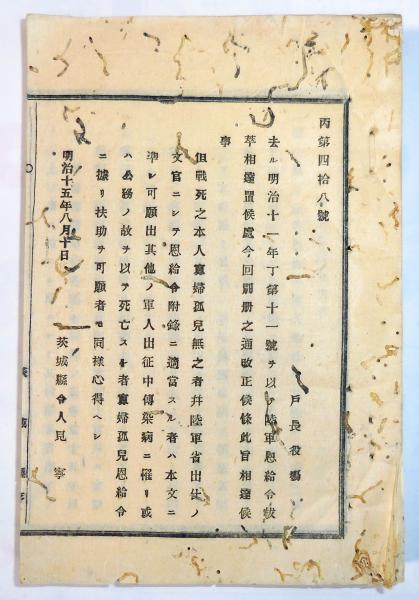 丙第四拾八號
戸長役塲
去ル明治十一年丁第十一號ヲ以テ陸軍恩給令拔
萃相達置候處今回別册之通改正候條此旨相達候
事
但戰死之本人寡婦孤兒無之者幷陸軍省出仕ノ
文官ニシテ恩給令附錄ニ適當スル者ハ本文ニ
準シ可願出其他ノ軍人出征中傳染病ニ罹リ或
ハ公務ノ故ヲ以テ死亡スル者寡婦孤兒恩給令
ニ據リ扶助ヲ可願者モ同樣心得ヘシ
明治十五年八月十日
茨城縣令人見寧